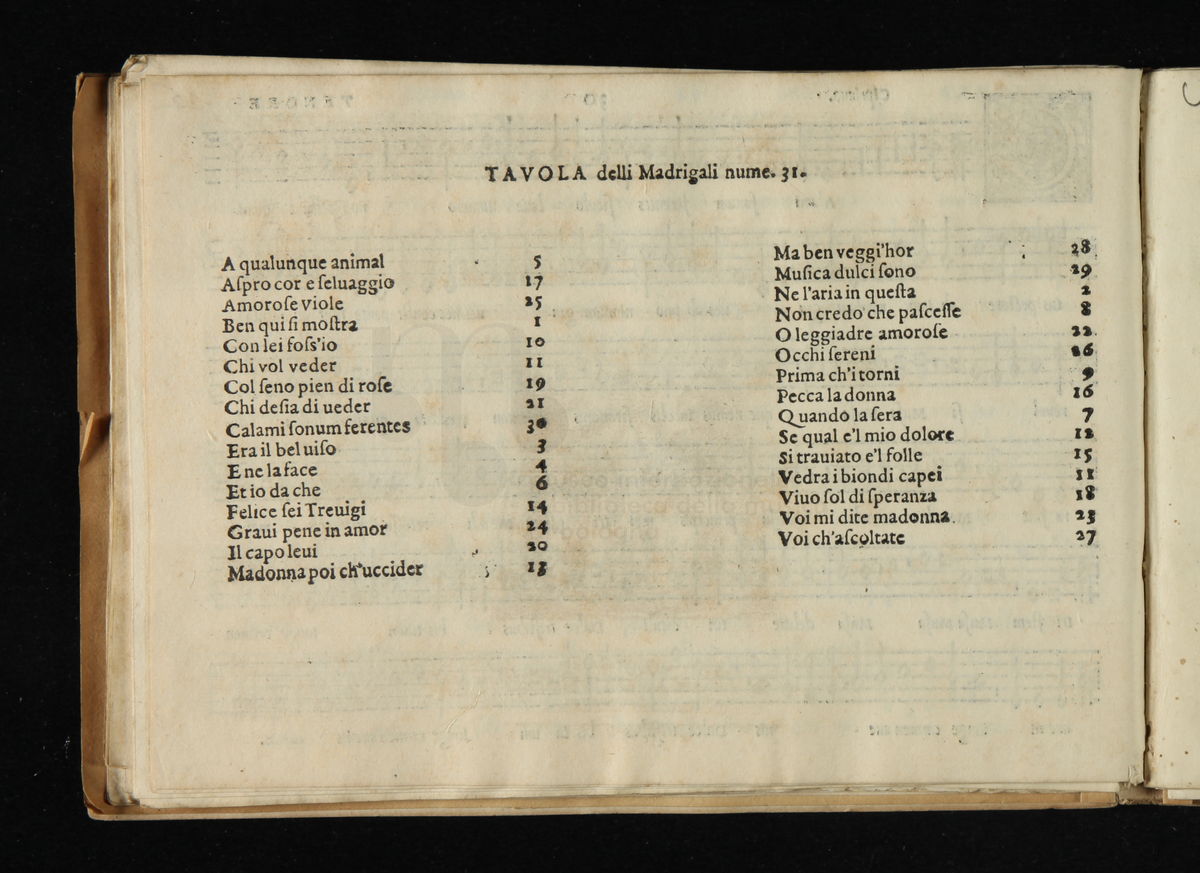 TAVOLA delli Madrigali nume. 31.
A qualunque animal 5
Aſpro cor e ſeluaggio 17
Amoroſe viole 25
Ben qui ſi moſtra 1
Con lei foſs'io 10
Chi vol veder 11
Col ſeno pien di roſe 19
Chi deſia di ueder 21
Calami ſonum ferentes 30
Era il bel uiſo 3
E ne la face 4
Et io da che 6
Felice ſei Treuigi 14
Graui pene in amor 24
Il capo leui 20
Madonna poi ch'uccider 13
Ma ben veggi'hor 28
Muſica dulci ſono 29
Ne l'aria in queſta 2
Non credo che paſceſſe 8
O leggiadre amoroſe 22
Occhi ſereni 26
Prima ch'i torni 9
Pecca la donna 16
Quando la ſera 7
Se qual e'l mio dolore 12
Si trauiato e'l folle 15
Vedra i biondi capei 11
Viuo ſol di ſperanza 18
Voi mi dite madonna 23
Voi ch'aſcoltate 27